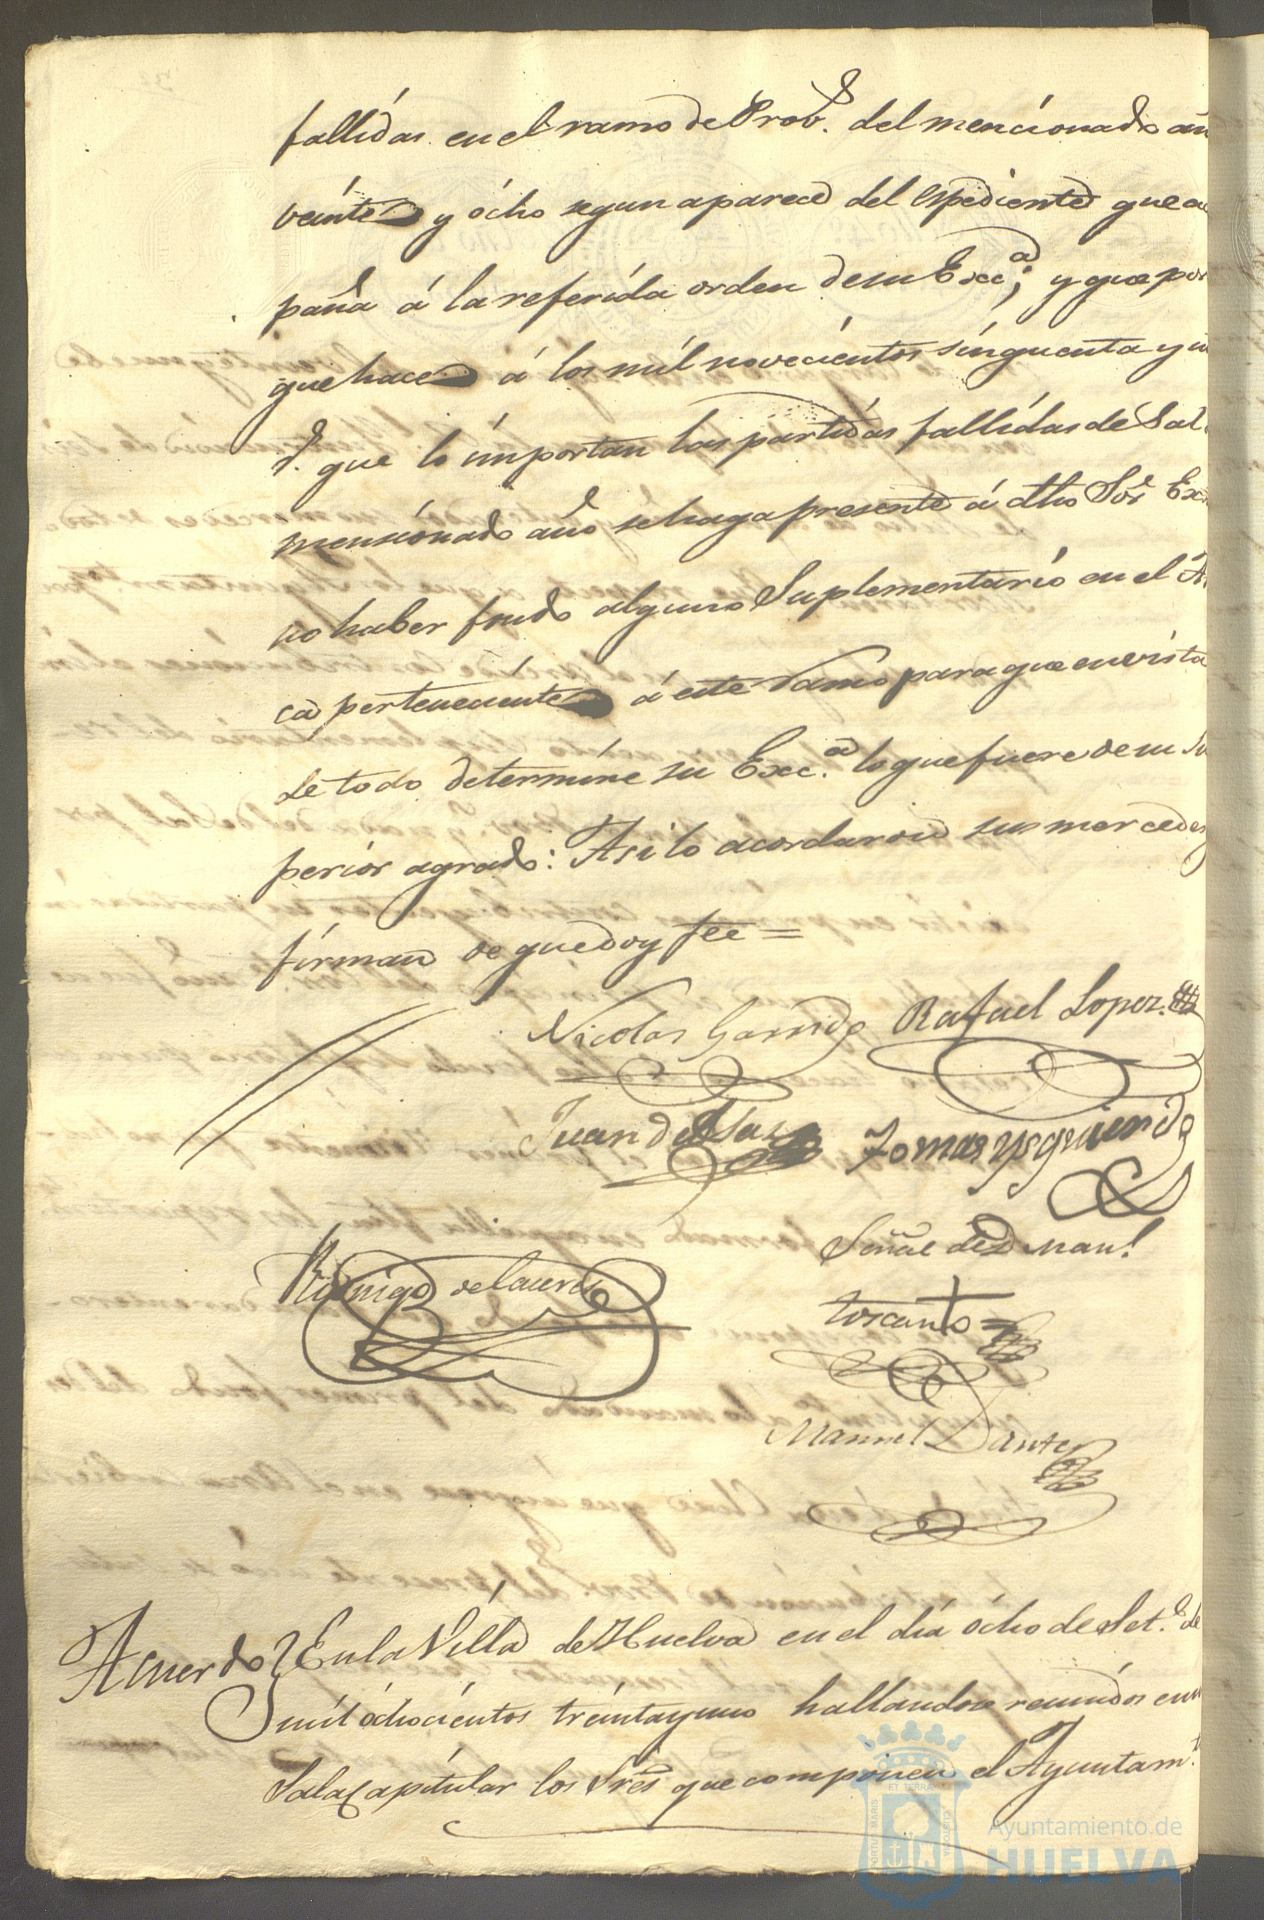 fallidas en el ramo de Prov.s del mencionado añ
veinte y ócho segun aparece del espediente que ac
paña á la referida orden de su Exc.a; y que por
que hace á los míl novecientos sinquenta y u
r.s que lo ímportan las partidas fallidas de Sal
mensionado año se haga presente á dho Sor. Ex
no haber fondo alguno Suplementario en el A
ca perteneciente á este ramo para que en vista
de todo determine su Exc.a lo que fuere de su Su
perior agrado: Asi lo acordaron sus mercedes
fírman de que doy fee =
Nicolas Garrido Rafael Lopez
Juan de
Tomas Ysquierdo
Señal de D. Man.l
Rodrigo de
toscano
Manuel Dante
Acuerdo En la Villa de Huelva en el día ócho de Set.e de
míl óchocientos treinta y uno hallandose reunidos en su
Sala Capitular los Sres que componen el Ayuntam.to
PORTUS MARIS
ET TERRAE
CUSTODIA
Ayuntamiento de
HUELVA